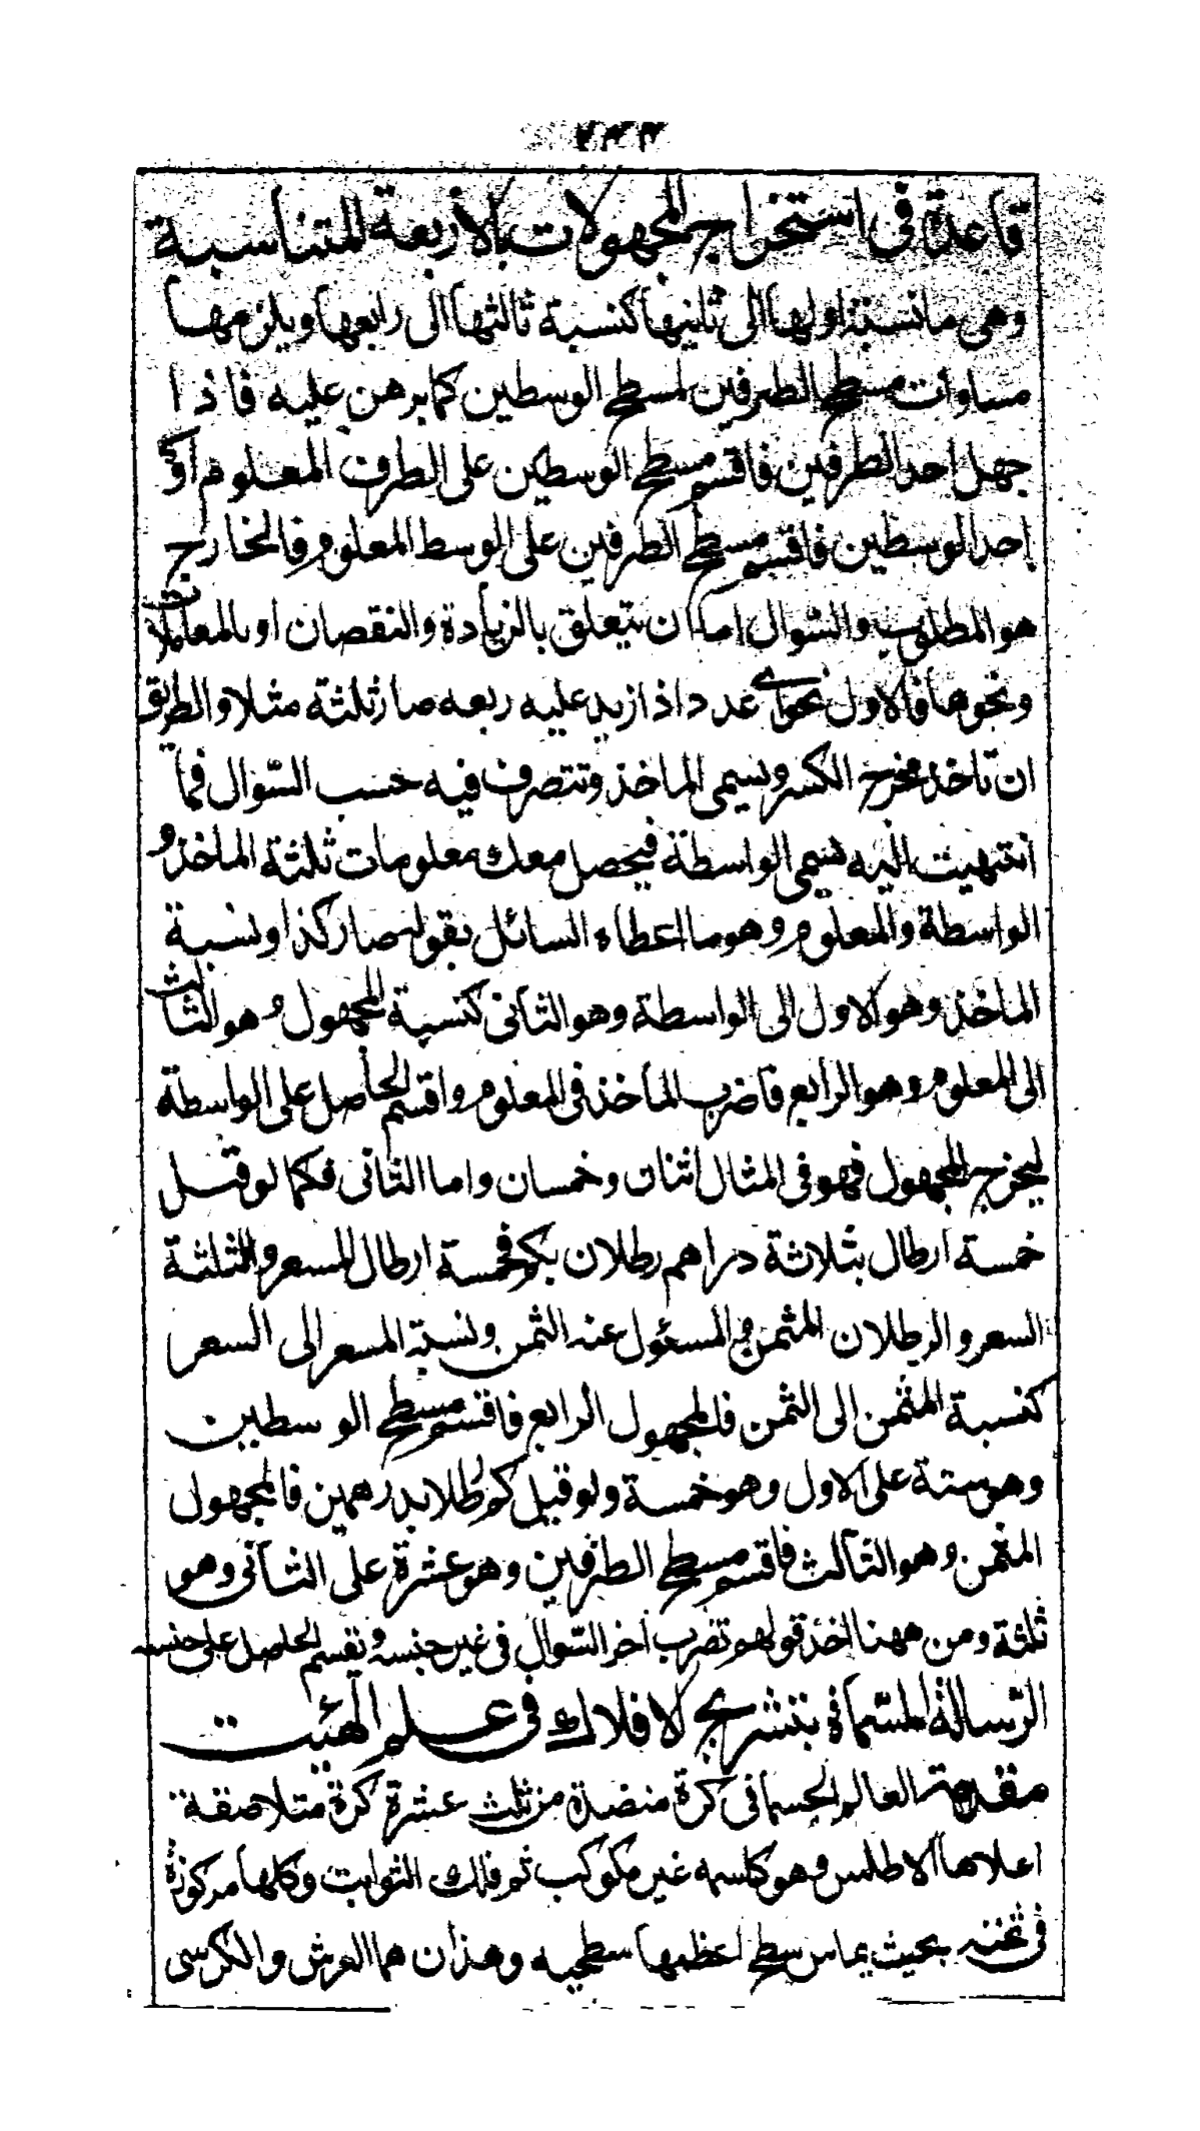 ٢٣٣
قاعدة فى استخراج المجهولات بالأربعة المتناسبة
وهى ما نسبة اولها الى ثانيها كنسبة ثالثها الى رابعها ويلزمها
مساوات مسطح الطرفين لمسطح الوسطين كما برهن عليه فاذا
جهل احد الطرفين فاقسم مسطح الوسطين على الطرف المعلوم أو
احد الوسطين فاقسم مسطح الطرفين على الوسط المعلوم فالخارج
هو المطلوب والسّوال اما ان يتعلق بالزيادة والنقصان او بالمعاملات
ونحوها فالاول نحو اى عدد اذا زيد عليه ربعه صار ثلثة مثلا والطريق
ان تاخذ مخرج الكسر ويسمى الماخذ وتتصرف فيه حسب السّوال فما
انتهيت اليه يسمى الواسطة فيحصل معك معلومات ثلثة الماخذ و
الواسطة والمعلوم وهو ما اعطاه السائل بقوله صار كذا ونسبة
الماخذ وهو الاول الى الواسطة وهو الثانى كنسبة المجهول وهو الثالث
الى المعلوم وهو الرابع فاضرب الماخذ فى المعلوم واقسم الحاصل على الواسطة
ليخرج المجهول فهو فى المثال اثنان وخمسان واما الثانى فكما لو قيل
خمسة ارطال بثلاثة دراهم رطلان بكم فخمسة ارطال المسعر والثلثة
السعر والرطلان المثمن والمسئول عنه الثمن ونسبة المسعر الى السعر
كنسبة المثمن الى الثمن فالمجهول الرابع فاقسم مسطح الوسطين
وهو ستة على الاول وهو خمسة ولو قيل كم رطلا بدرهمين فالمجهول
المثمن وهو الثالث فاقسم مسطح الطرفين وهو عشرة على الثانى وهو
ثلثة ومن ههنا اخذ قولهم تضرب آخر السّوال فى غير جنسه وتقسم الحاصل على جنسه
الرّسالة المسّماة بتشريح الافلاك فى علم الهيئت
مقدمة العالم الجسمانى كرة منضدة من ثلث عشرة كرة متلاصقة
اعلاها الاطلس وهو كاسمه غير مكوكب ثم فلك الثوابت وكلها مركوزة
فى ثخنه بحيث يماس سطح اعظمها سطحيه وهذان هما العرش والكرسى